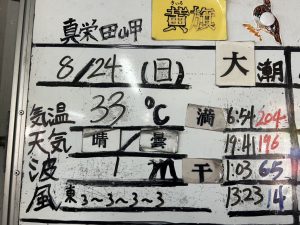 真栄田岬
黄旗
8/24 (日) 大潮
気温 33 ℃ 満 6:54 204
天気 晴/曇 19:41 196
波 1 m 干 1:03 65
風 東3~3~3~3 13:23 14